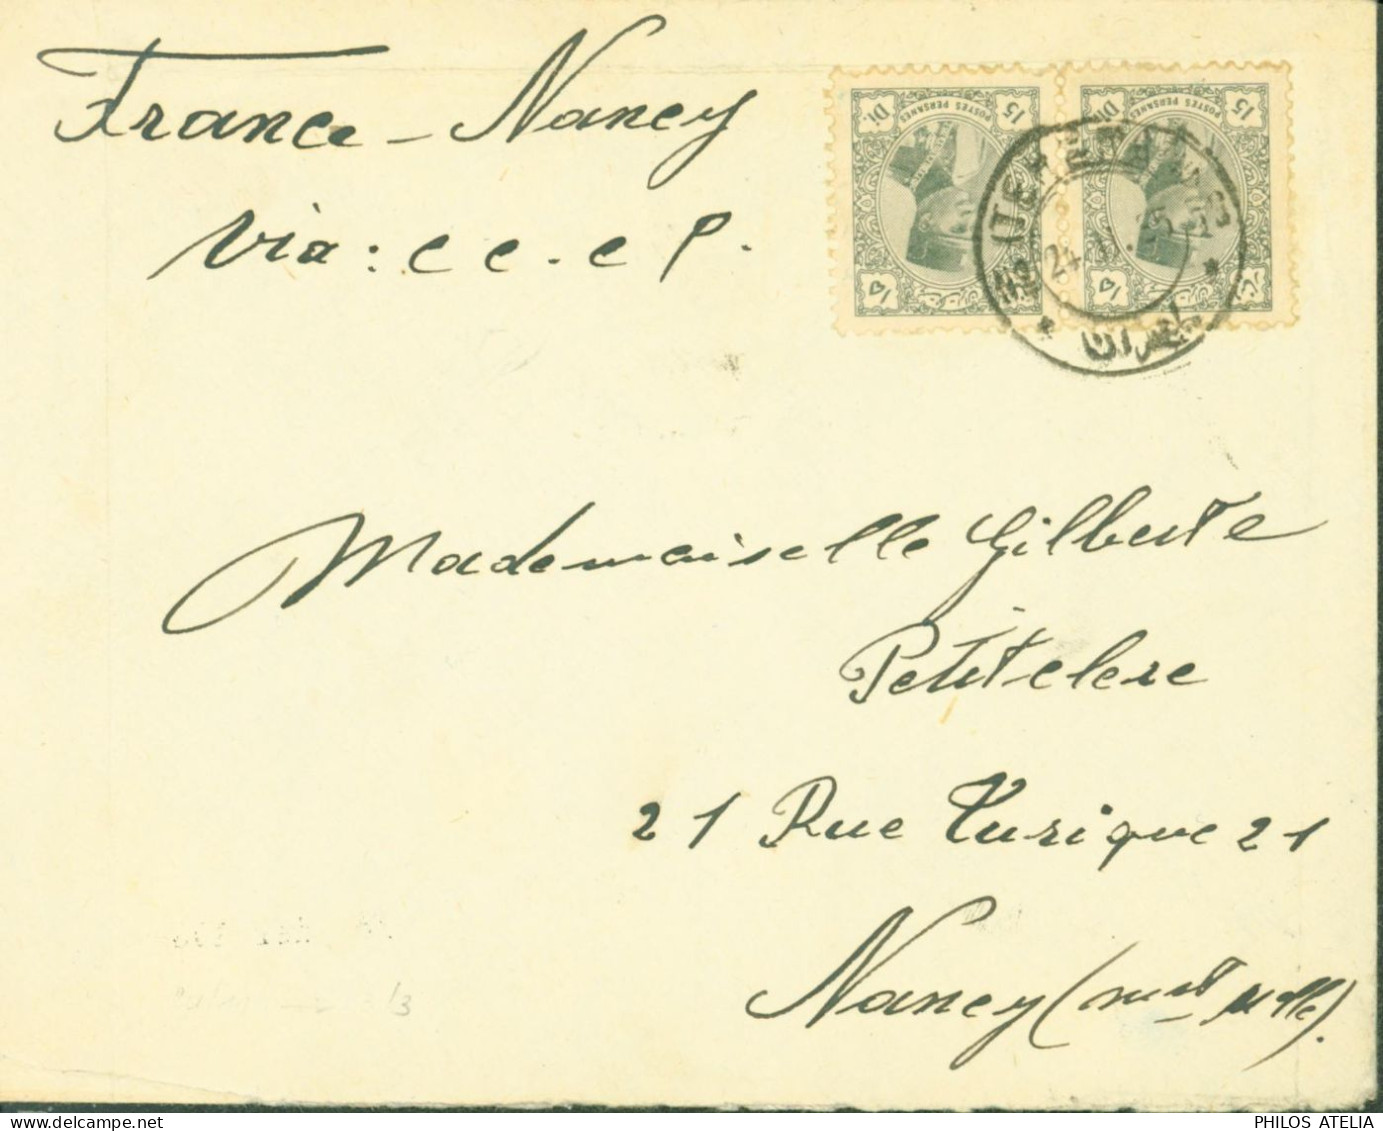 France - Nancy
Via : C C . C P .
15 Di. POSTES PERSANES
15 Di. POSTES PERSANES
تهران
Mademoiselle Gilberte
Petitclerc
21 Rue Turique 21
Nancy (Murt Melle).
PHILOS ATELIA